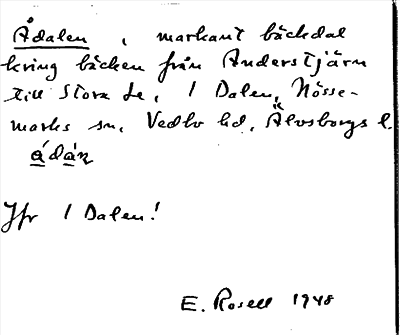 Ådalen, markant bäckdal
kring bäcken från Anderstjärn
till Stora Le, 1 Dalen, Nösse-
marks sn, Vedbo hd, Älvsborgs l.
ádàn
Jfr 1 Dalen!
E. Rosell 1948